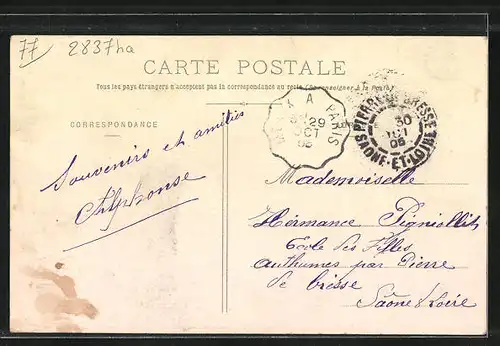 77 2837ha
CARTE POSTALE
Tous les pays étrangers n'acceptent pas la correspondance au recto (Se renseigner à la Poste)
CORRESPONDANCE
A PARIS
29
OCT
05
PIERRE BRESSE
30
OCT
05
SAONE-ET-LOIRE
Souvenirs et amitiés
Alphonse
Mademoiselle
Hermance Pigniollit
Ecole des Filles
Authumes par Pierre
de Bresse
Saône & Loire